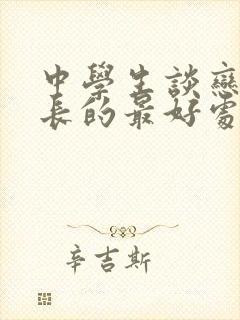 中學生談戀
長的最好處
辛吉斯